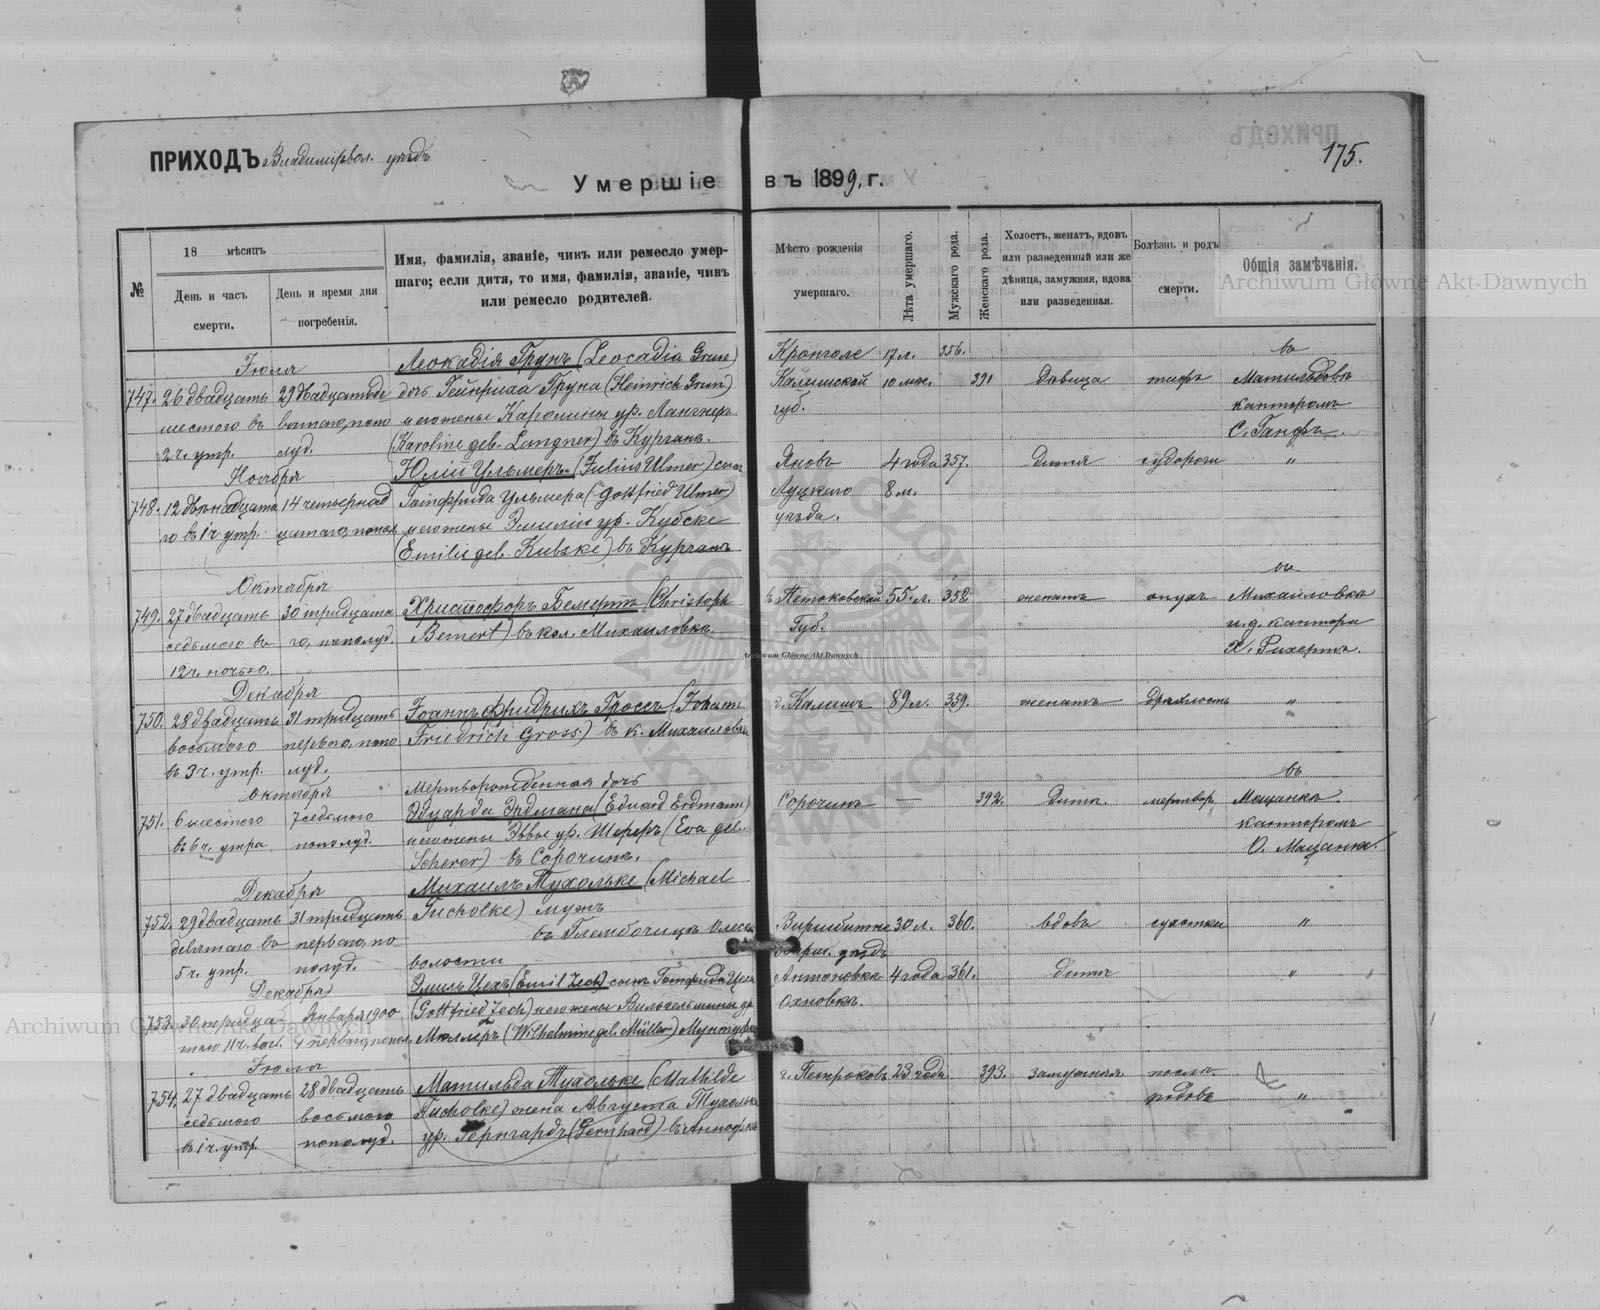 ПРИХОДЪ Владимірвол. уѣздъ
175.
Умершіе въ 1899, г.
№
18 мѣсяцъ
День и часъ смерти.
День и время дня погребенія.
Имя, фамилія, званіе, чинъ или ремесло умер-
шаго; если дитя, то имя, фамилія, званіе, чинъ
или ремесло родителей.
Мѣсто рожденія
умершаго.
Лѣта умершаго.
Мужскаго рода.
Женскаго рода.
Холостъ, женатъ, вдовъ
или разведенный или же
дѣвица, замужняя, вдова
или разведенная.
Болѣзнь и родъ
смерти.
Общія замѣчанія.
Archiwum Główne Akt Dawnych
Іюля Леокадія Грунъ (Leocadia Grun) 17 л. 356. въ
747. 26 двадцать дочь Гейнриха Груна (Heinrich Grun) Калишской 10 мѣс. 391 дѣвица тифъ
шестого въ и его жены Каролины ур. Лангнеръ губ. канторомъ
2 ч. утр. луд. (Karoline geb. Langner) въ Курганъ. С. Ганфъ.
Ноября Юлій Ульмеръ (Julius Ulmer) сынъ Яновъ 4 года 357. дитя судороги "
748. 12 двѣнадцата 14 четырнад Готфрида Ульмера (Gottfried Ulmer) Луцкаго 8 м.
го въ 1 ч утр. и его жены Эмиліи ур. Кубске уѣзда.
(Emilie geb. Kubske) въ Курганъ
Октября въ
749. 27 двадцать 30 тридцата Христофоръ Бемертъ (Christoph 55. л. 358 женатъ опухъ Михайловкѣ
седьмого въ го, пополуд. Bemert) въ кол. Михайловкѣ. Губ. и.д. кантора
12 ч. ночью. Х. Рихертъ.
Archiwum Główne Akt Dawnych
Декабря
750. 28 двадцать 31 тридцать Іоаннъ Фридрихъ Гроссъ (Johann г. Калишъ 89 л. 359. женатъ дряхлость "
восьмого перваго, попо Friedrich Gross.) въ к. Михайловкѣ
въ 3 ч. утр. луд.
Октября Мертворожденная дочь въ
751. 6 шестого 7 седьмого Эдуарда Эрдмана (Eduard Erdmann) Сорочинъ — 392. Дитя. мертвор.
въ 6 ч. утра пополуд. и его жены Эввы ур. Шереръ (Eva geb. канторомъ
Scherer) въ Сорочинъ. О. Мацанка.
Декабря Михаилъ Тухольке (Michael
752. 29 двадцать 31 тридцать Tucholke) мужъ 30 л. 360. вдовъ "
девятаго въ перваго, по- въ
5 ч. утр. полуд. волости
Декабря Эмиль Цехъ (Emil Zech) сынъ Готфрида Цеха Антоновка 4 года 361. дитя "
753. Января 1900 (Gottfried Zech) и его жены Вильгельмины ур.
Мюллеръ (Wilhelmine geb. Müller)
Archiwum Główne Akt Dawnych
Іюля
754. 27 двадцать 28 двадцать Матильда Тухольке (Mathilde г. Петроковъ 23 года 393. замужняя послѣ
седьмого восьмого Tucholke) жена Августа Тухольке родовъ "
въ 1 ч. утр. пополуд. ур. Гернгардъ (Gernhard)